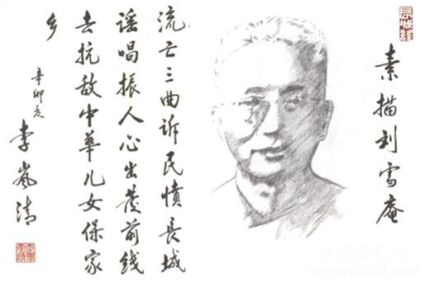 素描刘雪庵
流亡三曲诉民愤长城
谣唱振人心出发前线
去抗敌中华儿女保家
乡
辛卯夏
李岚清
www.y5000.com